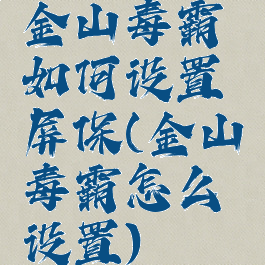 金山毒霸
如何设置
屏保(金山
毒霸怎么
设置)